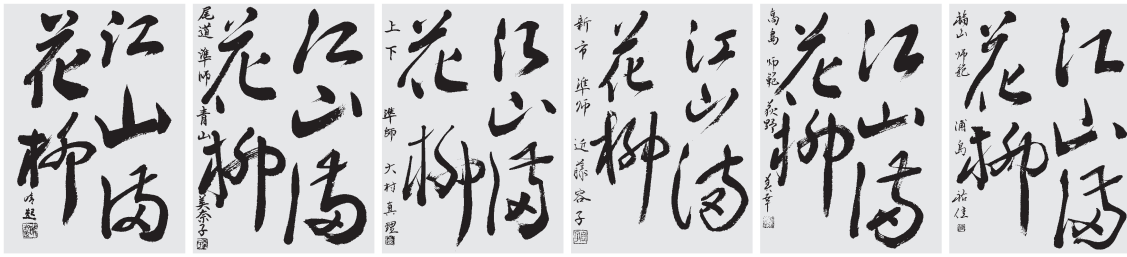 江山満
花柳
江山満
花柳
尾道 準師 青山美奈子
江山満
花柳
上下 準師 大村真理
江山満
花柳
新市 準師 近藤容子
江山満
花柳
高島 师範 荻野美幸
江山満
花柳
福山 师範 浦島祐佳